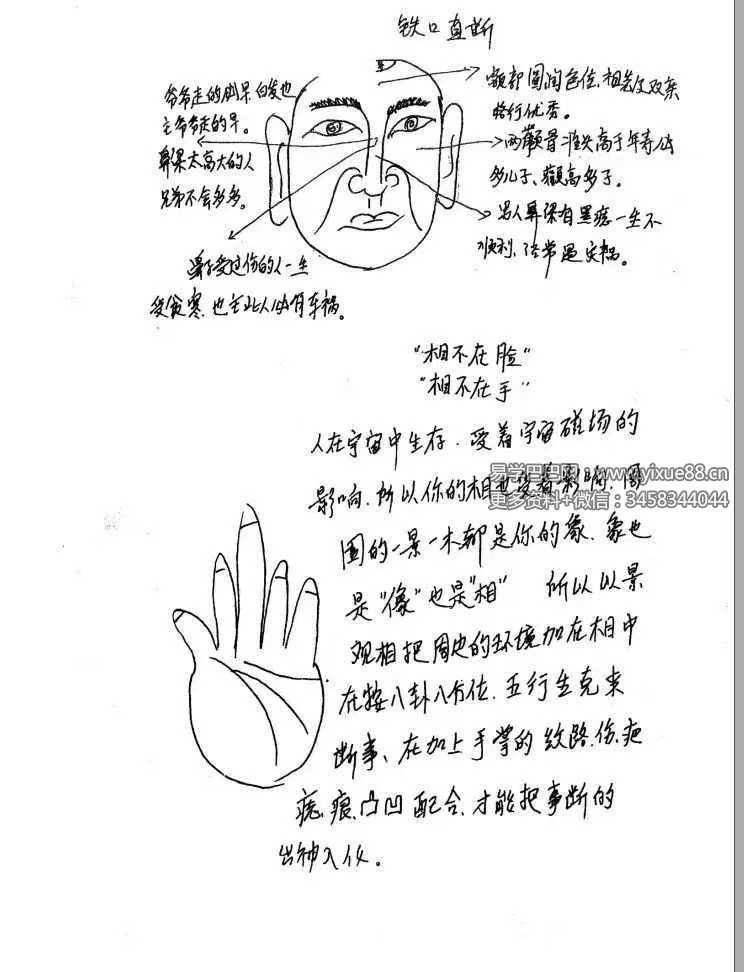 铁口直断
爷爷走的倒早.白发也
主爷爷走的早。
鼻梁太高大的人
兄弟不会多多。
鼻子受过伤的人一生
受贫寒.也主此人必有车祸。
额部圆润色佳.祖美父双亲
路行优秀。
两颧骨准尖高于年寿必
多儿子、颧高多子。
男人鼻梁有黑痣一生不
顺利、经常遇灾祸。
"相不在脸"
"相不在手"
人在宇宙中生存.受着宇宙磁场的
影响.所以你的相也受着影响.周
围的一景一木都是你的象.象也
是"像"也是"相" 所以以景
观相把周边的环境加在相中
在按八卦八方位.五行生克来
断事、在加上手掌的纹路.伤.疤
痣.痕.凸凹配合.才能把事断的
出神入化。
易学巴巴网:www.yixue88.cn
更多资料+微信:3458344044